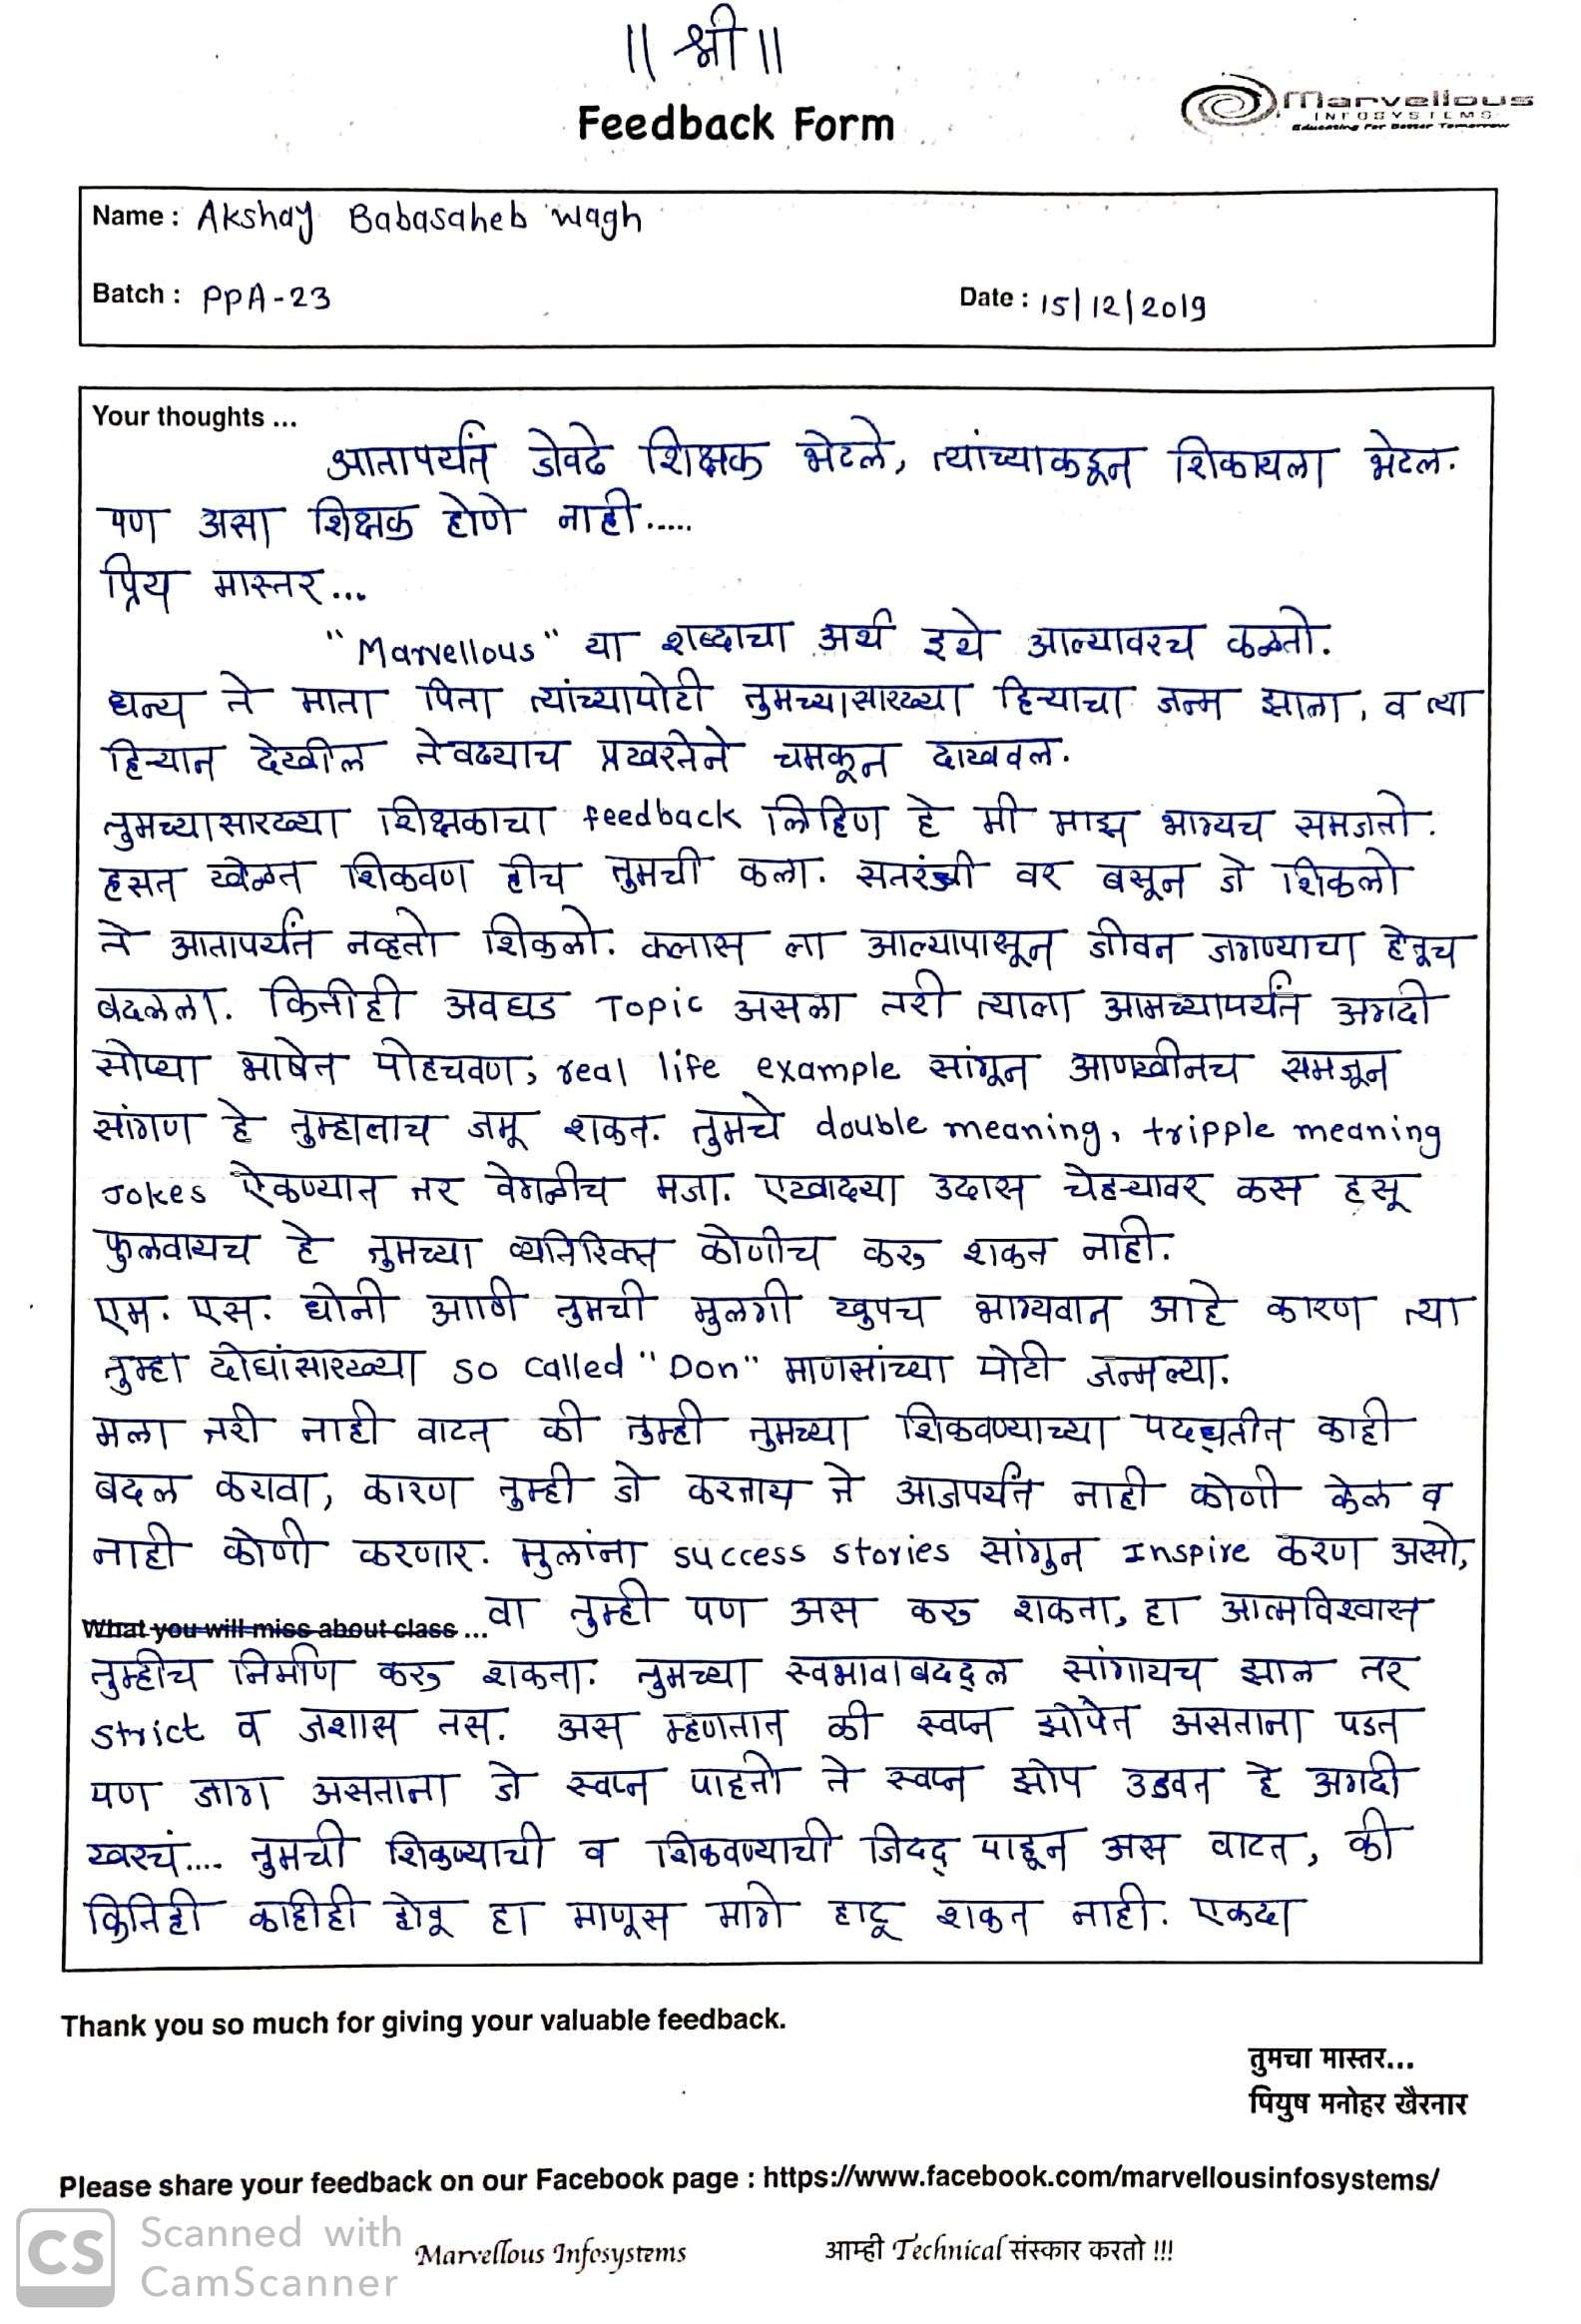 || श्री ||
Feedback Form
Marvellous
INFOSYSTEMS
Educating For Better Tomorrow
Name : Akshay Babasaheb Wagh
Batch : PPA-23
Date : 15/12/2019
Your thoughts ...
आतापर्यंत जेवढे शिक्षक भेटले, त्यांच्याकडून शिकायला भेटल.
पण असा शिक्षक होणे नाही.....
प्रिय मास्तर...
"Marvellous" या शब्दाचा अर्थ इथे आल्यावरच कळतो.
धन्य ते माता पिता त्यांच्यापोटी तुमच्यासारख्या हिऱ्याचा जन्म झाला, व त्या
हिऱ्यान देखील तेवढ्याच प्रखरतेने चमकून दाखवल.
तुमच्यासारख्या शिक्षकाचा feedback लिहिण हे मी माझ भाग्यच समजतो.
हसत खेळत शिकवण हीच तुमची कला. सतरंजी वर बसून जे शिकलो
ते आतापर्यंत नव्हतो शिकलो. क्लास ला आल्यापासून जीवन जगण्याचा हेतूच
बदलला. कितीही अवघड Topic असला तरी त्याला आमच्यापर्यंत अगदी
सोप्या भाषेत पोहचवण, real life example सांगून आणखीनच समजून
सांगण हे तुम्हालाच जमू शकत. तुमचे double meaning, tripple meaning
Jokes ऐकण्यात तर वेगळीच मजा. एखादया उदास चेहऱ्यावर कस हसू
फुलवायच हे तुमच्या व्यतिरिक्त कोणीच करु शकत नाही.
एम. एस. धोनी आणि तुमची मुलगी खुपच भाग्यवान आहे कारण त्या
तुम्हा दोघांसारख्या so called "Don" माणसांच्या पोटी जन्मल्या.
मला तरी नाही वाटत की तुम्ही तुमच्या शिकवण्याच्या पदद्धतीत काही
बदल करावा, कारण तुम्ही जे करताय ते आजपर्यंत नाही कोणी केल व
नाही कोणी करणार. मुलांना success stories सांगुन Inspire करण असो,
What you will miss about class ... वा तुम्ही पण अस करु शकता, हा आत्मविश्वास
तुम्हीच निर्माण करु शकता. तुमच्या स्वभावाबदद्ल सांगायच झाल तर
strict व जशास तस. अस म्हणतात की स्वप्न झोपेत असताना पडत
पण जाग असताना जे स्वप्न पाहतो ते स्वप्न झोप उडवत हे अगदी
खरचं.... तुमची शिकण्याची व शिकवण्याची जिदद् पाहून अस वाटत, की
कितिही काहीही होवू हा माणूस मागे हाटू शकत नाही. एकदा
Thank you so much for giving your valuable feedback.
तुमचा मास्तर...
पियुष मनोहर खैरनार
Please share your feedback on our Facebook page : https://www.facebook.com/marvellousinfosystems/
Marvellous Infosystems आम्ही Technical संस्कार करतो !!!
CS Scanned with
CamScanner